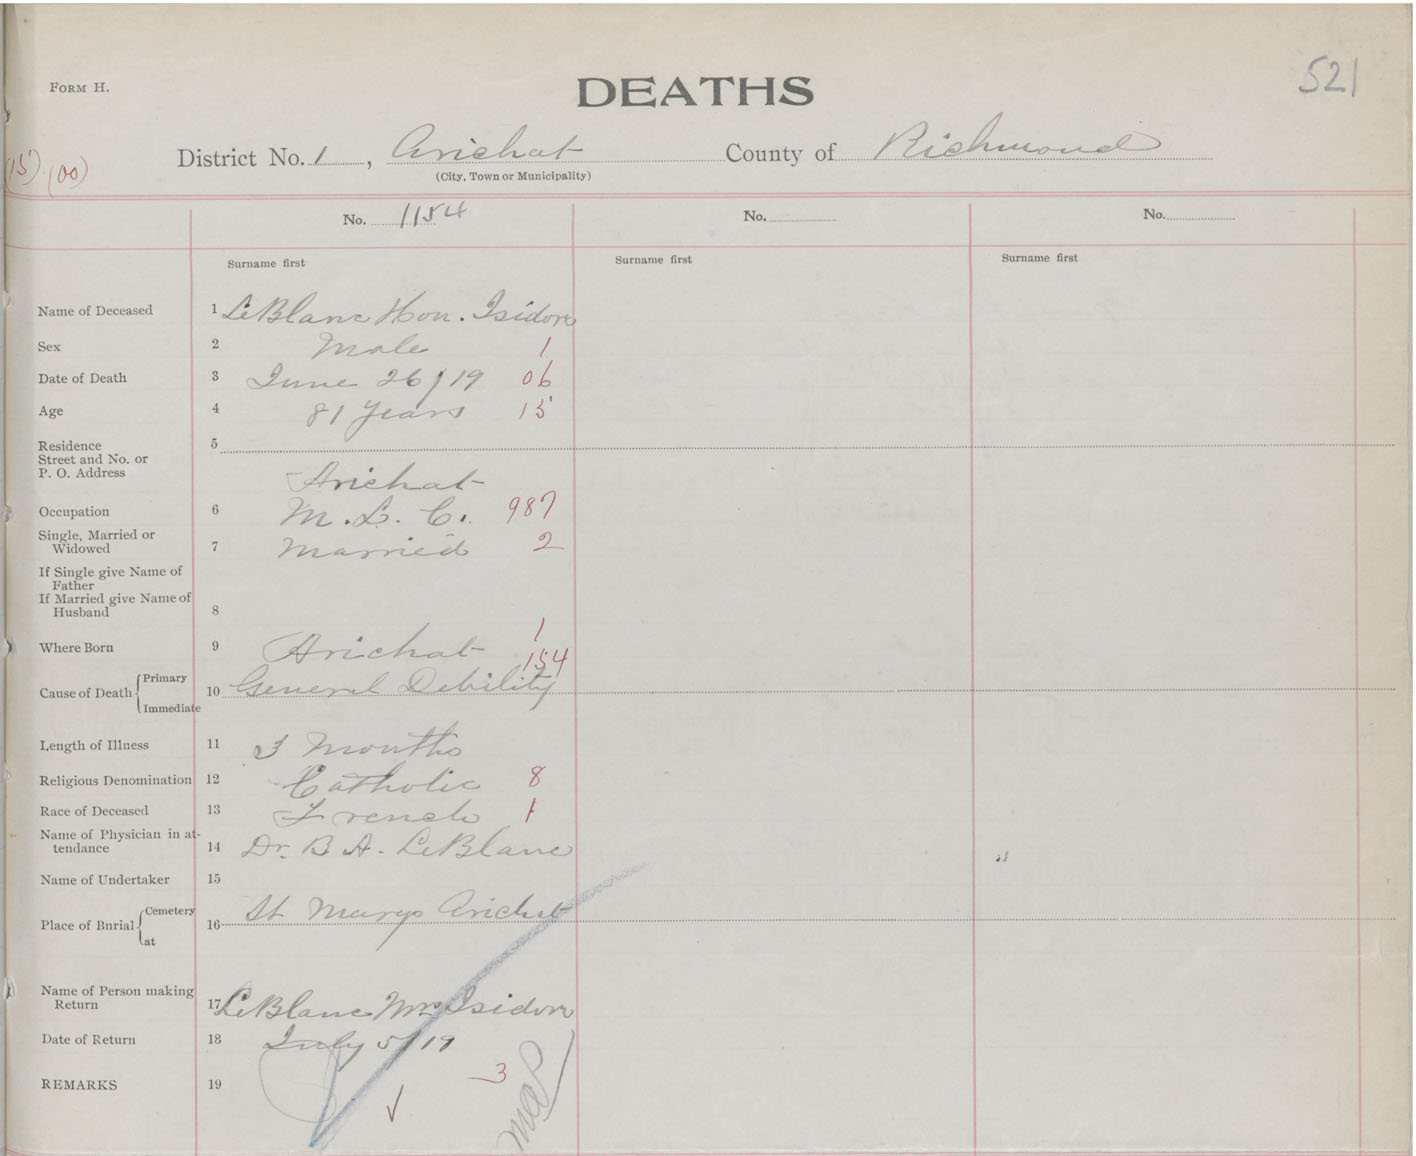 FORM H.
DEATHS
521
(15) (00)
District No. 1, Arichat County of Richmond
(City, Town or Municipality)
No. 1154 No. No.
Surname first Surname first Surname first
Name of Deceased 1 LeBlanc Hon. Isidore
Sex 2 Male 1
Date of Death 3 June 26/19 06
Age 4 81 Years 15
Residence 5
Street and No. or
P. O. Address
Arichat
Occupation 6 M. L. C. 987
Single, Married or
Widowed 7 Married 2
If Single give Name of
Father
If Married give Name of
Husband 8
1
Where Born 9 Arichat
154
Cause of Death { Primary
10 General Debility
Immediate
Length of Illness 11 3 Months
Religious Denomination 12 Catholic 8
Race of Deceased 13 French 1
Name of Physician in at-
tendance 14 Dr. B A. LeBlanc
Name of Undertaker 15
Place of Burial { Cemetery
16 St Marys Arichat
at
Name of Person making
Return 17 LeBlanc Mrs Isidore
Date of Return 18 July 5/19
REMARKS 19 3